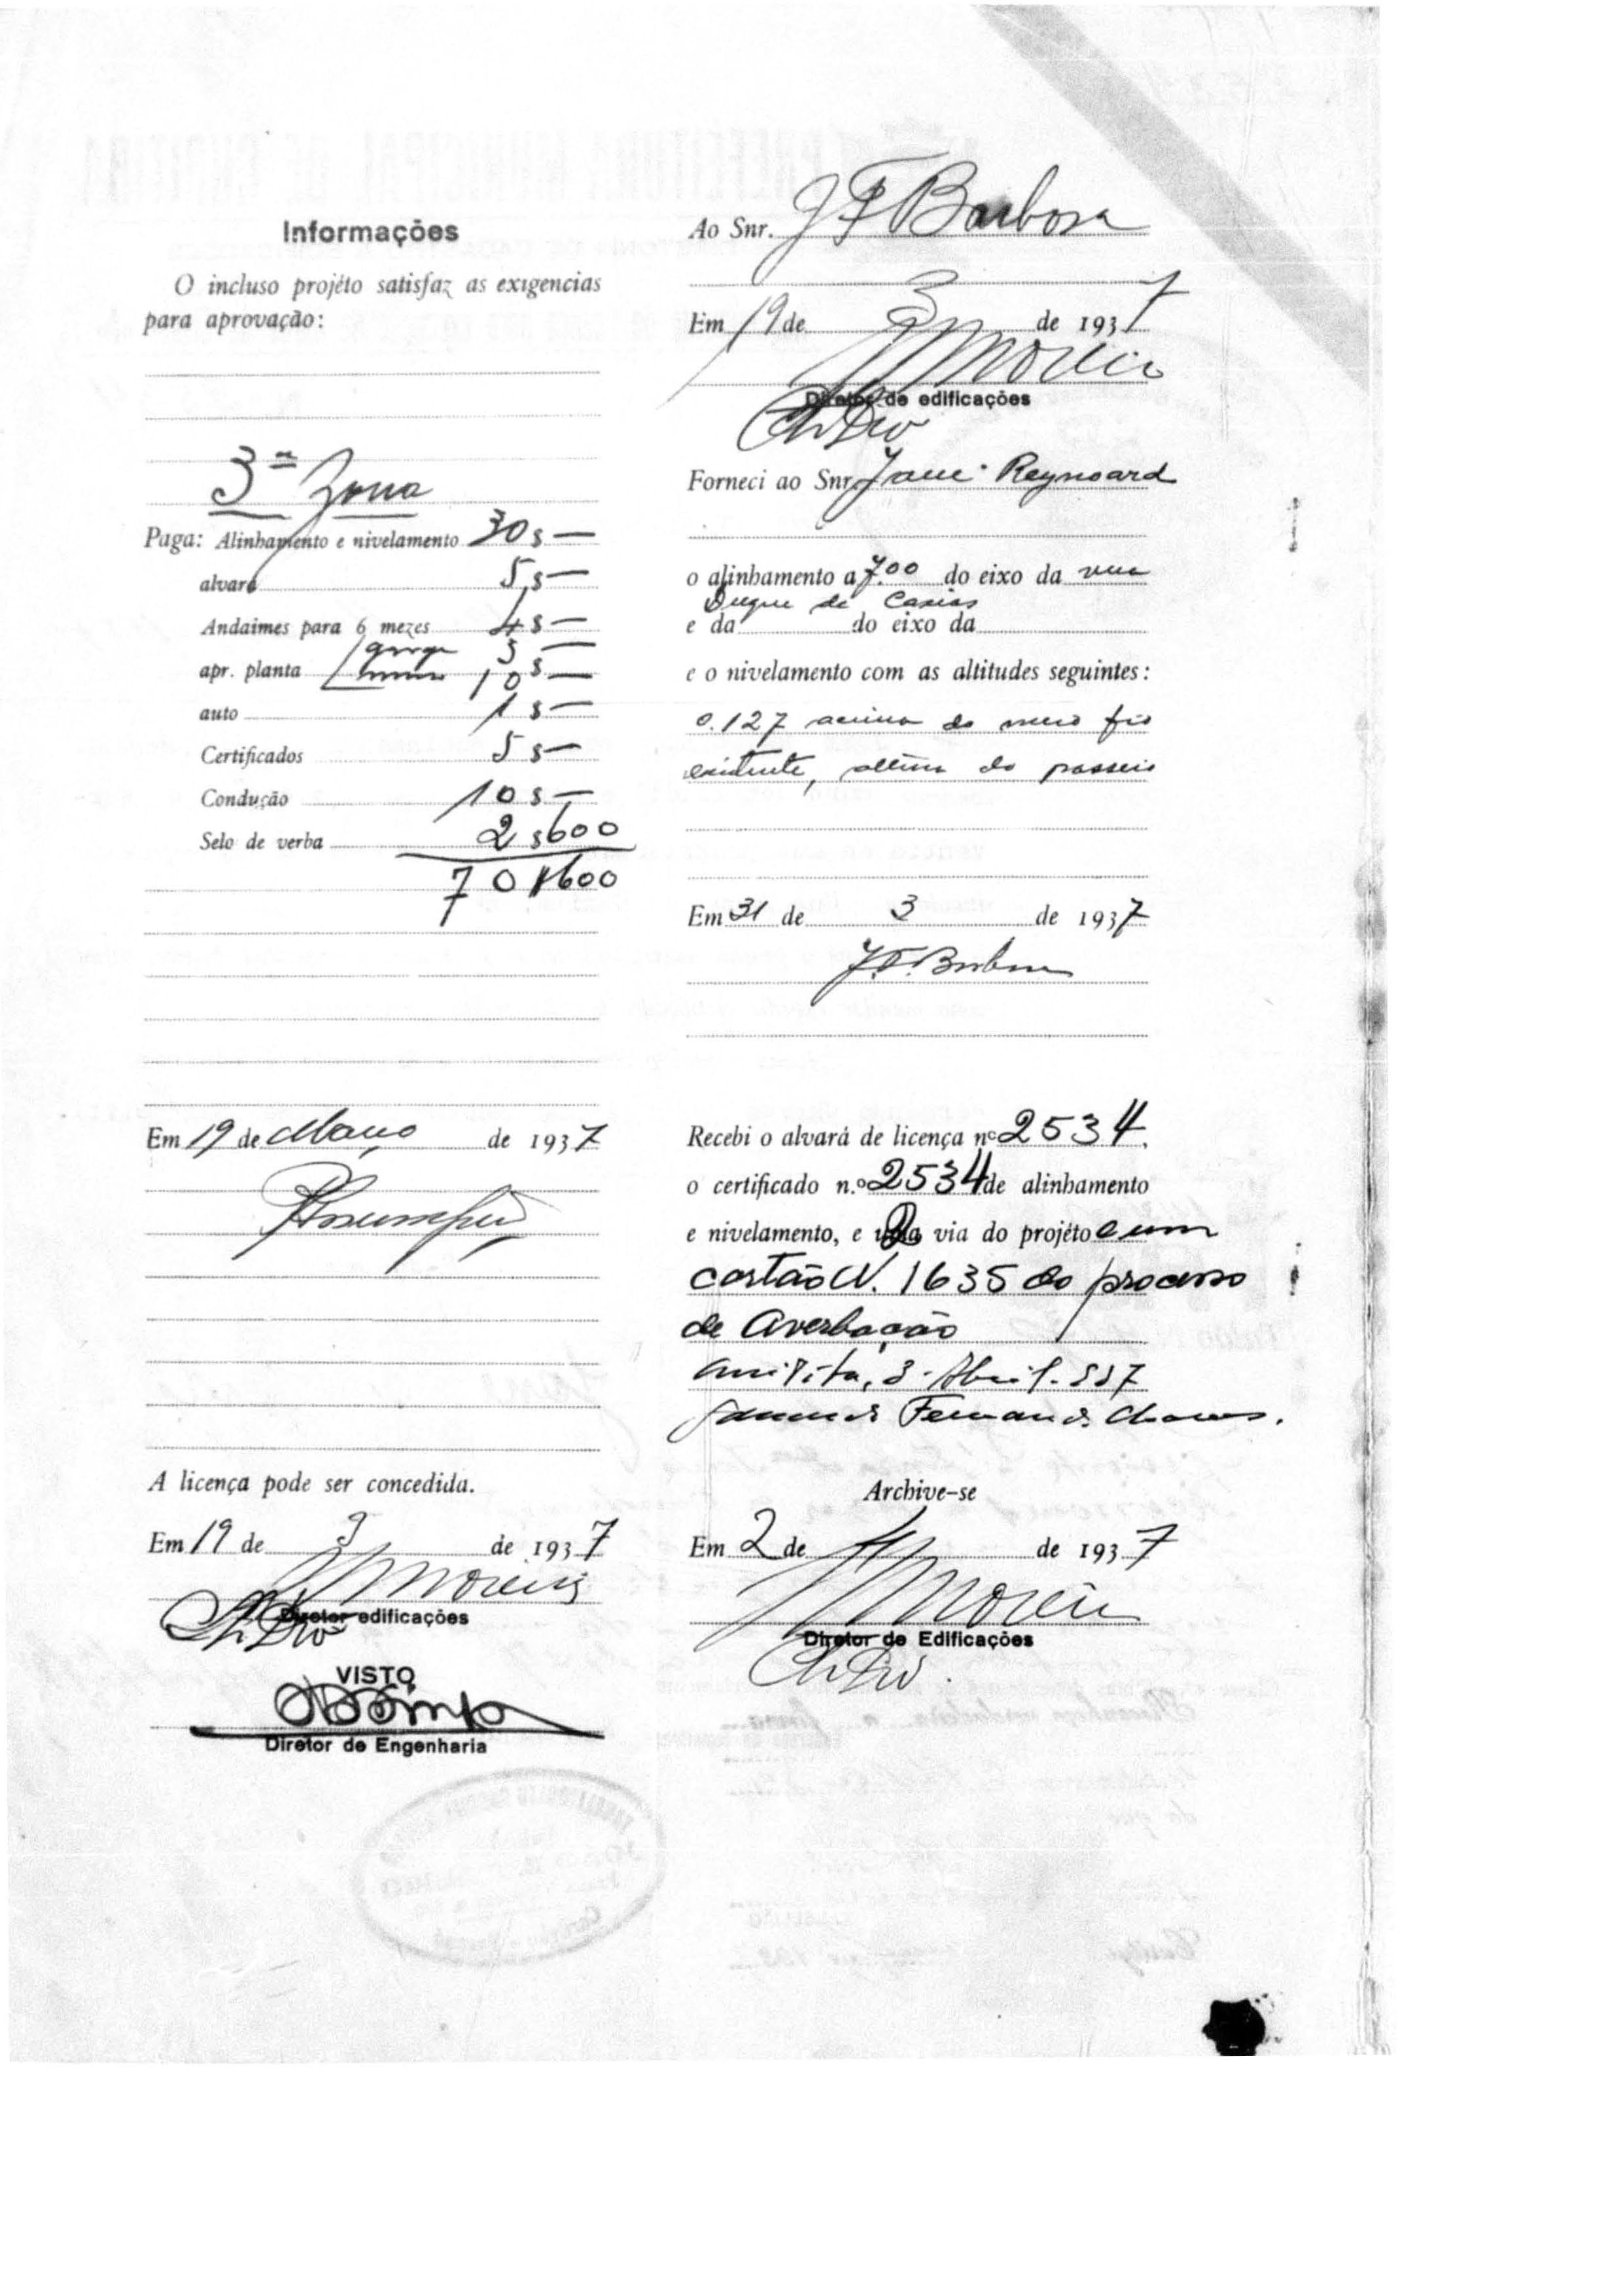 Informações
O incluso projéto satisfaz as exigencias
para aprovação:
3ª Zona
Paga: Alinhamento e nivelamento 30$—
alvará 5$—
Andaimes para 6 mezes 4$—
3 —
apr. planta 10$—
auto 1$—
Certificados 5$—
Condução 10$—
Selo de verba 2$600
70$600
Em 19 de Março de 1937
A licença pode ser concedida.
Em 19 de 3 de 1937
Moreira
Diretor edificações
VISTO
Diretor de Engenharia
Ao Snr. J F Barbosa
Em 19 de 3 de 1937
Moreira
Diretor de edificações
Forneci ao Snr. Reynoard
o alinhamento a 7.00 do eixo da rua
Duque de Caxias
e da do eixo da
e o nivelamento com as altitudes seguintes:
0.127 acima do meio fio
existente, altura do passeio
Em 31 de 3 de 1937
J.F. Barbosa
Recebi o alvará de licença nº 2534,
o certificado n.º 2534 de alinhamento
e nivelamento, e via do projéto e um
cartão N. 1635 do processo
de Averbação
3 Abril
Fernand. Chaves.
Archive-se
Em 2 de 4 de 1937
Moreira
Diretor de Edificações